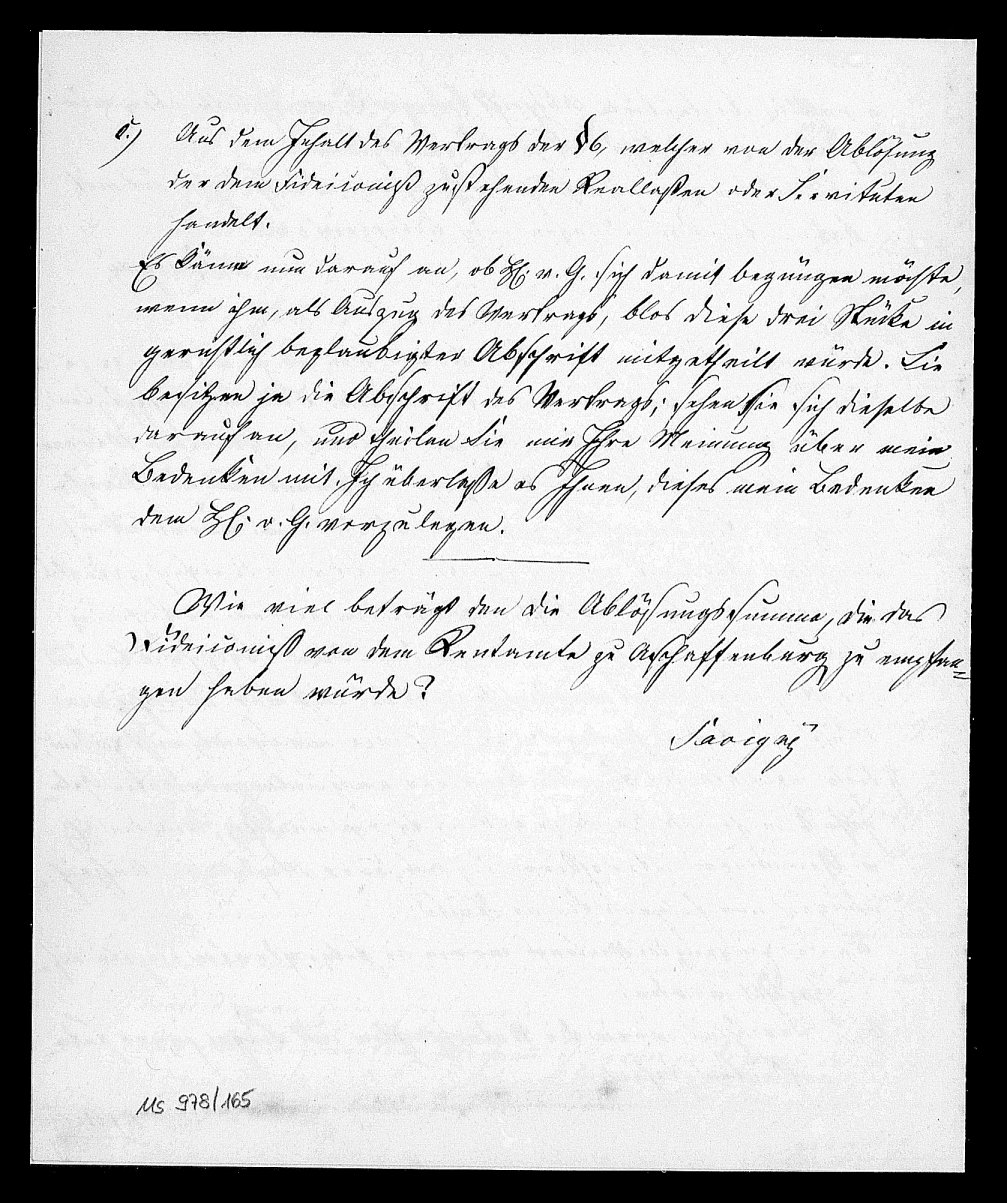 c.) Aus dem Inhalt des Vertrags der § 6, welcher von der Ablösung
der dem Fideicomiß zustehenden Reallasten oder Servituten
handelt.
Es käme nun darauf an, ob H. v. G. sich damit begnügen möchte,
wenn ihm, als Auszug des Vertrags, blos diese drei Stücke in
gerichtlich beglaubigter Abschrift mitgetheilt würde. Sie
besitzen ja die Abschrift des Vertrags; sehen Sie sich dieselbe
darauf an, und theilen Sie mir Ihre Meinung über mein
Bedenken mit. Ich überlaße es Ihnen, dieses mein Bedenken
dem H. v. G. vorzulegen.
Wie viel beträgt den die Ablösungssumme, die das
Fideicomiß von dem Rentamte zu Aschaffenburg zu empfan=
gen haben würde?
Savigny
Ms 978/165